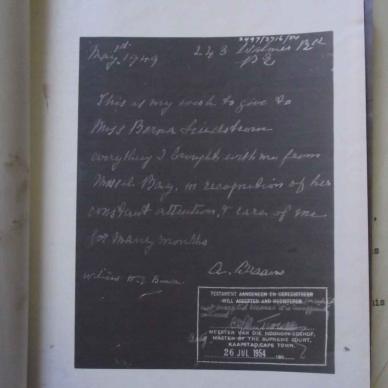 2497/2716/54
May 1st 1949 243 Walmer Rd
P E
This is my wish to give to
Miss Berna Lindstrom
everything I brought with me from
Mossel Bay, in recognition of her
constant attention, & care of me
for many months
Witness
TESTAMENT AANGENEEM EN GEREGISTREER
WILL ACCEPTED AND REGISTERED
MEESTER VAN DIE HOOGGEREGSHOF,
MASTER OF THE SUPREME COURT,
KAAPSTAD, CAPE TOWN.
26 JUL 1954